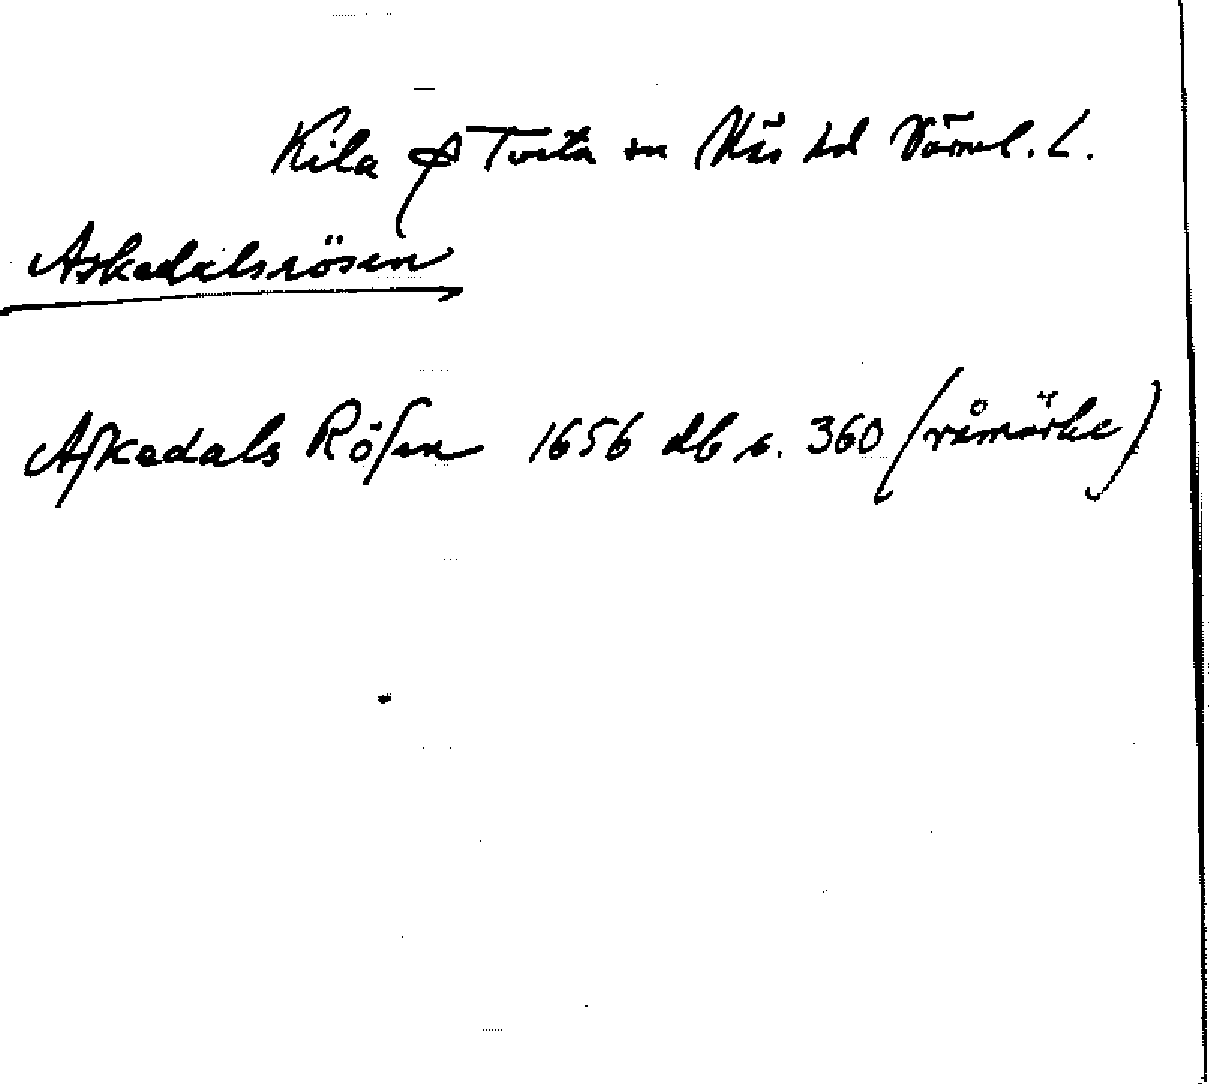 Kila ɸ Tveta o Näs hd Värml. L.
Askedalsrösen
Aſkedals Röſen 1656 db s. 360 (råmärke)